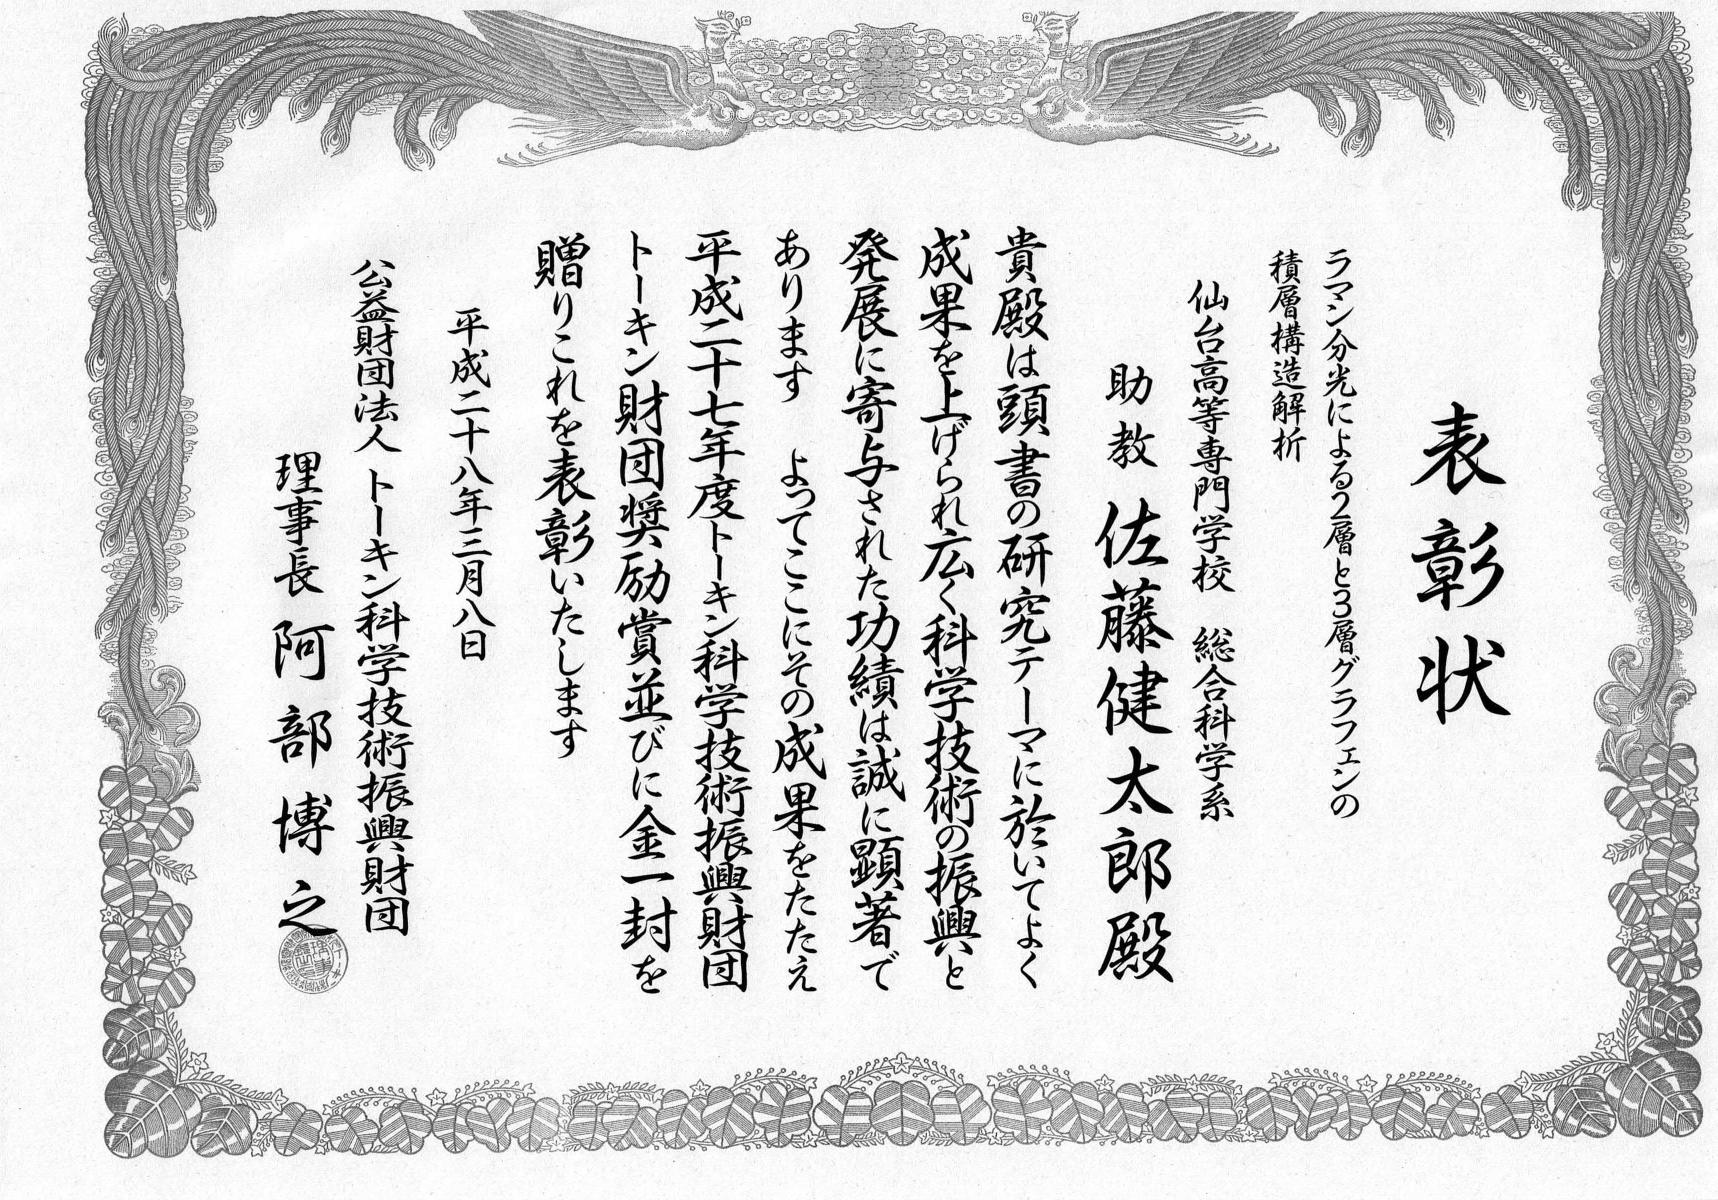 表彰状
ラマン分光による2層と3層グラフェンの
積層構造解析
仙台高等専門学校　総合科学系
助教 佐藤健太郎殿
貴殿は頭書の研究テーマに於いてよく
成果を上げられ広く科学技術の振興と
発展に寄与された功績は誠に顕著で
あります　よってここにその成果をたたえ
平成二十七年度トーキン科学技術振興財団
トーキン財団奨励賞並びに金一封を
贈りこれを表彰いたします
平成二十八年三月八日
公益財団法人 トーキン科学技術振興財団
理事長 阿部博之